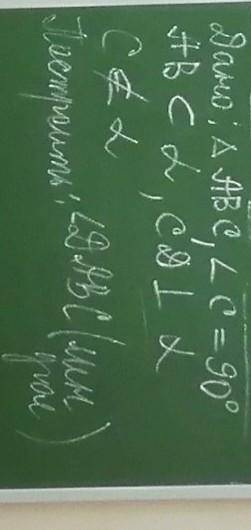 Дано: △ ABC, ∠ C = 90°
AB ⊂ α, CD ⊥ α
C ∉ α
Построить: ∠DABC (лин
угол)